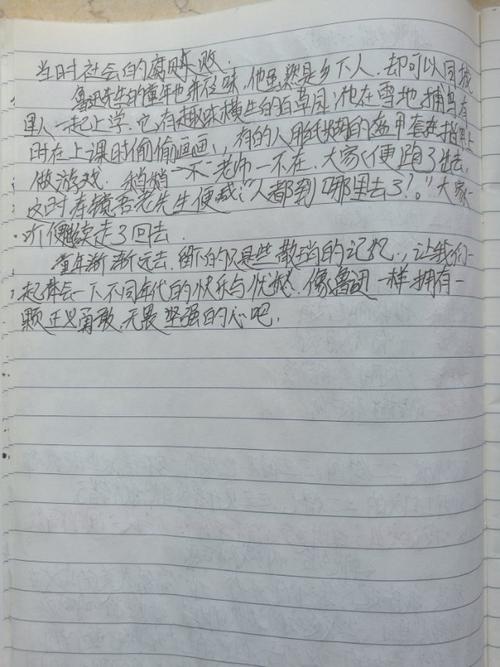 当时社会的腐败。
鲁迅先生的童年也并乏味,他虽然是乡下人,却可以同城
里人一起上学,它有趣味横生的百草园,他在雪地捕鸟,有
时在上课时偷偷画画,有的人用纸糊的盔甲套在指甲上
做游戏。稍稍一不 老师一不在,大家便跑了出去,
这时寿镜吾老先生便喊:“人都到哪里去了!。”大家一
听便继续走了回去。
童年渐渐远去,留下的只是些散碎的记忆,让我们一
起体会一下不同年代的快乐与忧愁,像鲁迅一样拥有一
颗正义勇敢,无畏坚强的心吧。